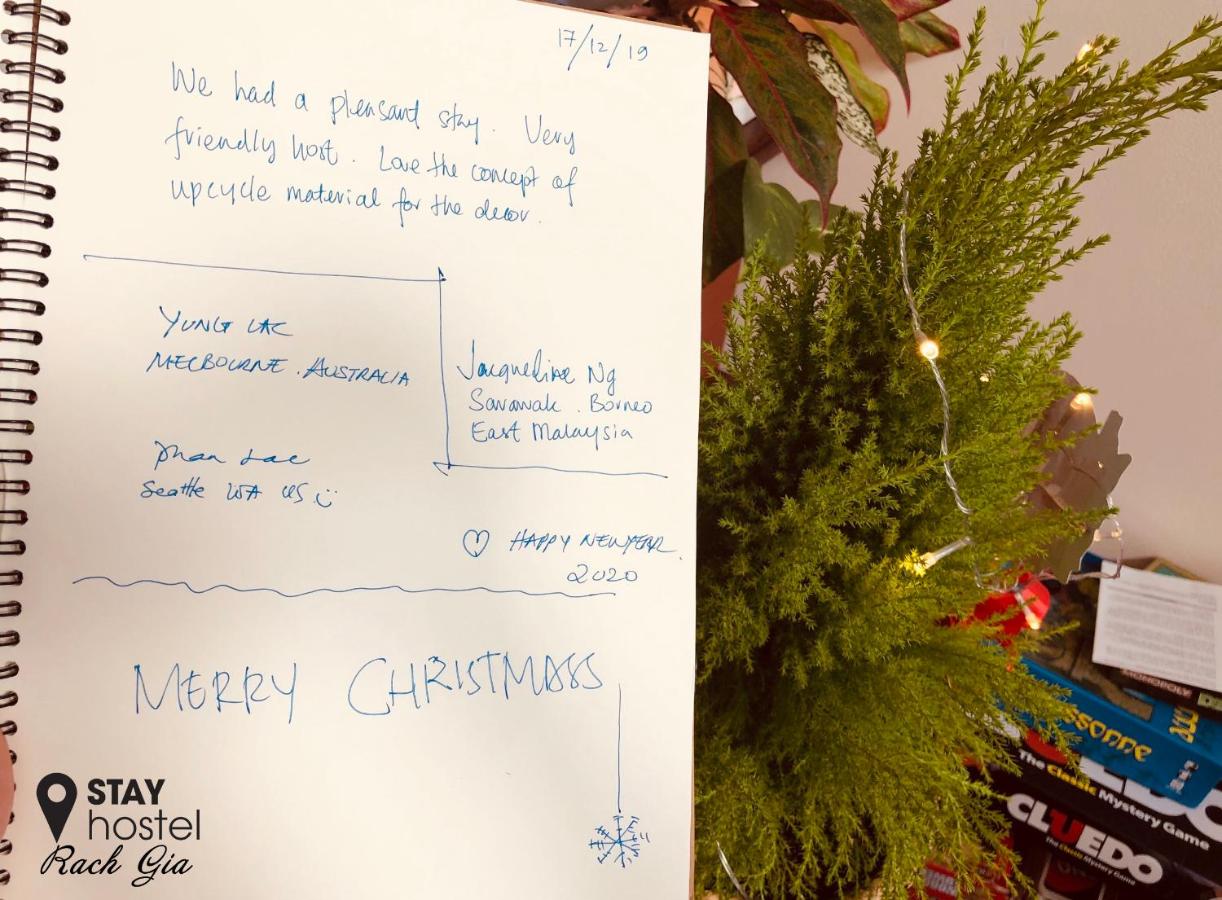 17/12/19
We had a pleasant stay. Very
friendly host. Love the concept of
upcycle material for the decor.
YUNG LAC
MELBOURNE. AUSTRALIA
Jacqueline Ng
Sarawak. Borneo
East Malaysia
Lac
Seattle WA US
HAPPY NEW YEAR.
2020
MERRY CHRISTMASS
STAY
hostel
Rach Gia
MONOPOLY
ssonne
The Classic Mystery Game
CLUEDO
The Classic Mystery Game